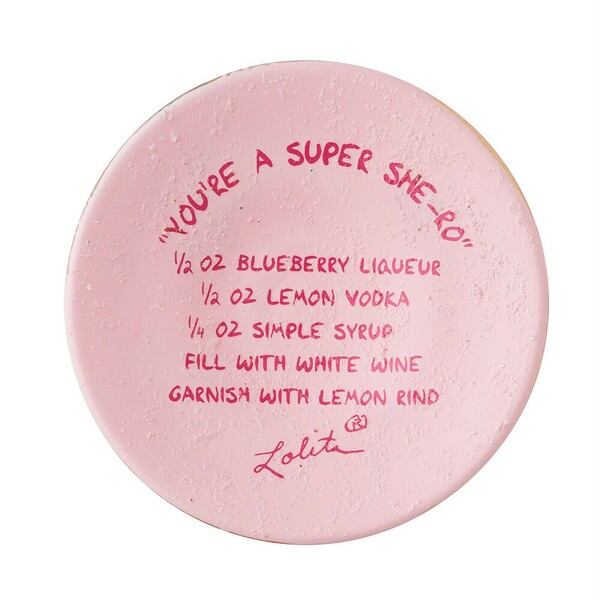 "YOU'RE A SUPER SHE-RO"
1/2 OZ BLUEBERRY LIQUEUR
1/2 OZ LEMON VODKA
1/4 OZ SIMPLE SYRUP
FILL WITH WHITE WINE
GARNISH WITH LEMON RIND
Lolita ®